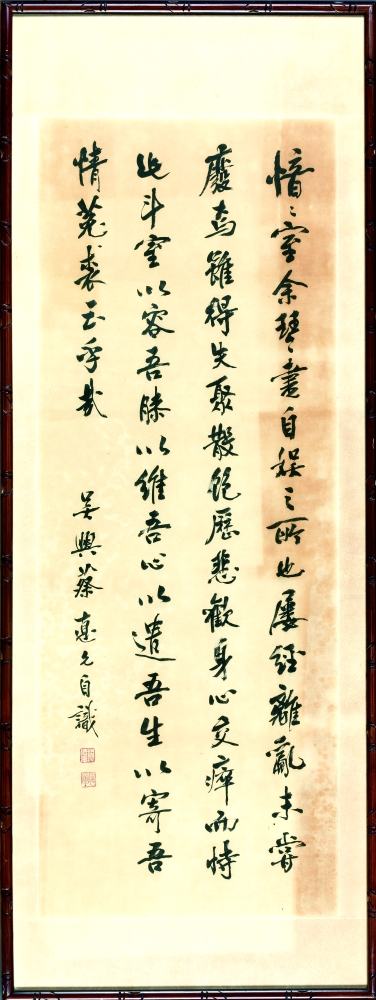 愔〻室余琴書自娱之所也屢經離亂未嘗
廢焉雖得失聚散飽歷悲歡身心交瘁而恃
此斗室以容吾膝以維吾心以遣吾生以寄吾
情菟裘云乎哉
吳興蔡悳允自識